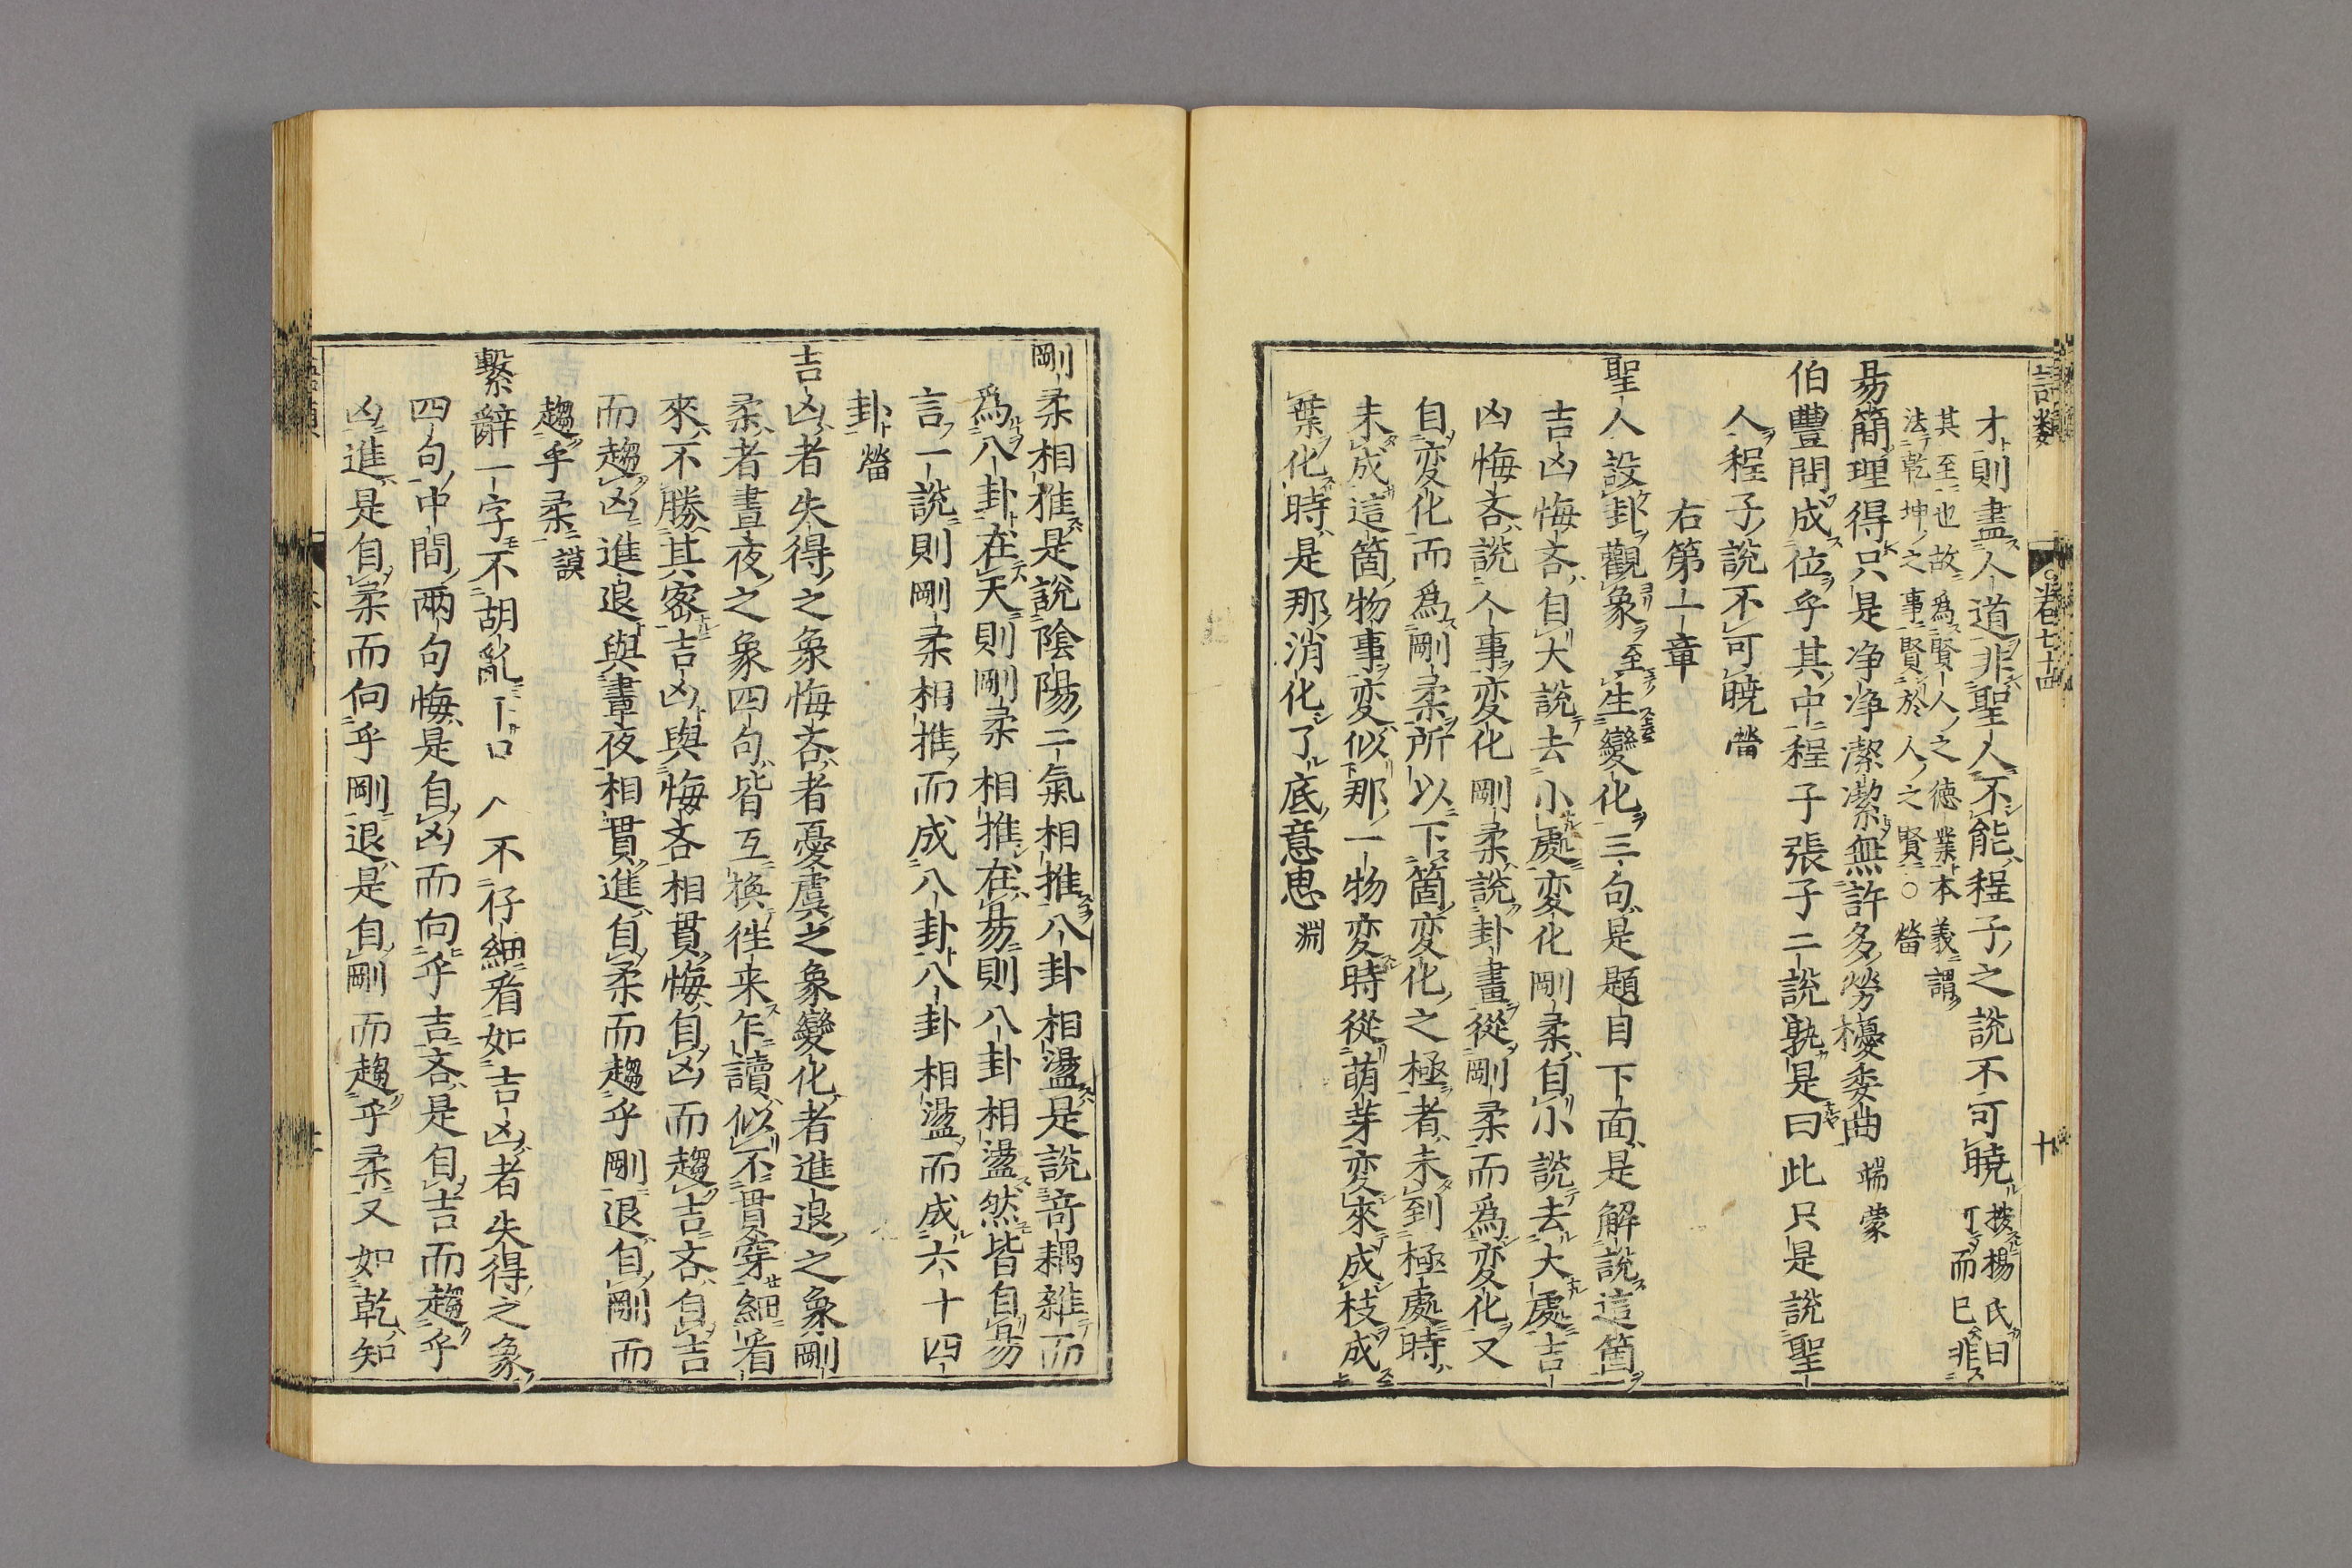 語類 卷七十四 十
才則盡人道非聖人不能程子之説不可曉 按楊氏曰可而已非
其至也故爲賢人之德業本義謂
法乾坤之事賢於人之賢○ 㽦
易簡理得只是净净潔潔無許多勞擾委曲 端蒙
伯豐問成位乎其中程子張子二説孰是曰此只是説聖
人程子説不可曉 㽦
右第一章
聖人設卦觀象至生變化三句是題目下面是解説這箇
吉凶悔吝自大説去小處変化剛柔自小説去大處吉
凶悔吝説人事変化剛柔説卦畫從剛柔而爲変化又
自変化而爲剛柔所以下箇変化之極者未到極處時
未成這箇物事変似那一物変時從萌芽変來成枝成
葉化時是那消化了底意思 淵
剛柔相推是説陰陽二氣相推八卦相盪是説竒耦雜而
爲八卦在天則剛柔相推在易則八卦相盪然皆自易
言一説則剛柔相推而成八卦八卦相盪而成六十四
卦 㽦
吉凶者失得之象悔吝者憂虞之象變化者進退之象剛
柔者晝夜之象四句皆互換往来乍讀似不貫穿細看
來不勝其密吉凶與悔吝相貫悔自凶而趨吉吝自吉
而趨凶進退與晝夜相貫進自柔而趨乎剛退自剛而
趨乎柔 謨
繫辭一字不胡亂下只人不仔細看如吉凶者失得之象
四句中間兩句悔是自凶而向乎吉吝是自吉而趨乎
凶進是自柔而向乎剛退是自剛而趨乎柔又如乾知